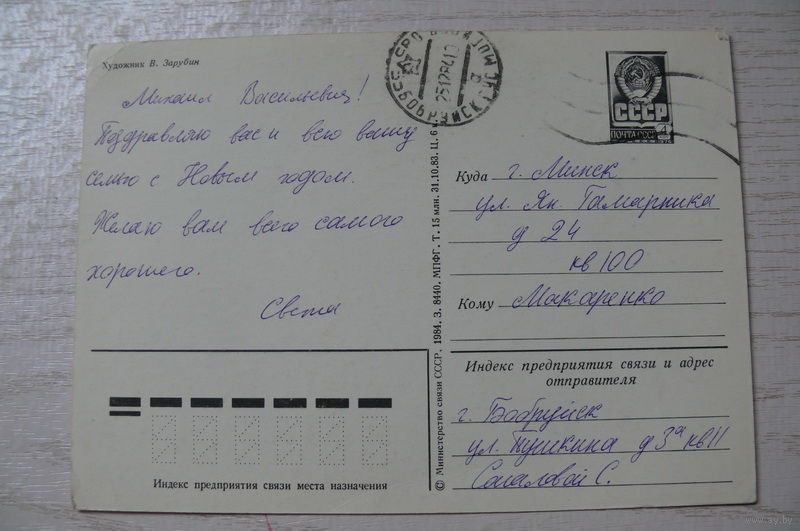 Художник В. Зарубин
Михаил Васильевич!
Поздравляю вас и всю вашу
семью с Новым годом.
Желаю вам всего самого
хорошего.
Света
Индекс предприятия связи места назначения
© Министерство связи СССР, 1984. З. 8440. МПФГ. Т. 15 млн. 31.10.83. Ц. 6
БОБРУЙСК
25128410
СССР
ПОЧТА СССР 4
Куда г. Минск
ул. Ян. Гамарника
д 24
кв 100
Кому Макаренко
Индекс предприятия связи и адрес
отправителя
г. Бобруйск
ул. Пушкина д 3а кв 11
С.
www.ay.by